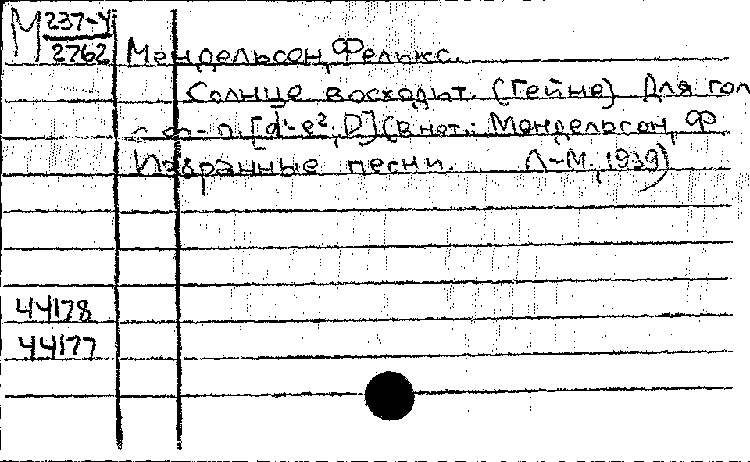 М 237-4
2762
Мендельсон, Феликс.
Солнце восходит. (Гейне) Для гол
с ф-п. [d¹-e²; D] (В нот.: Мендельсон, Ф
Избранные песни. Л-М., 1939)
44178
44177